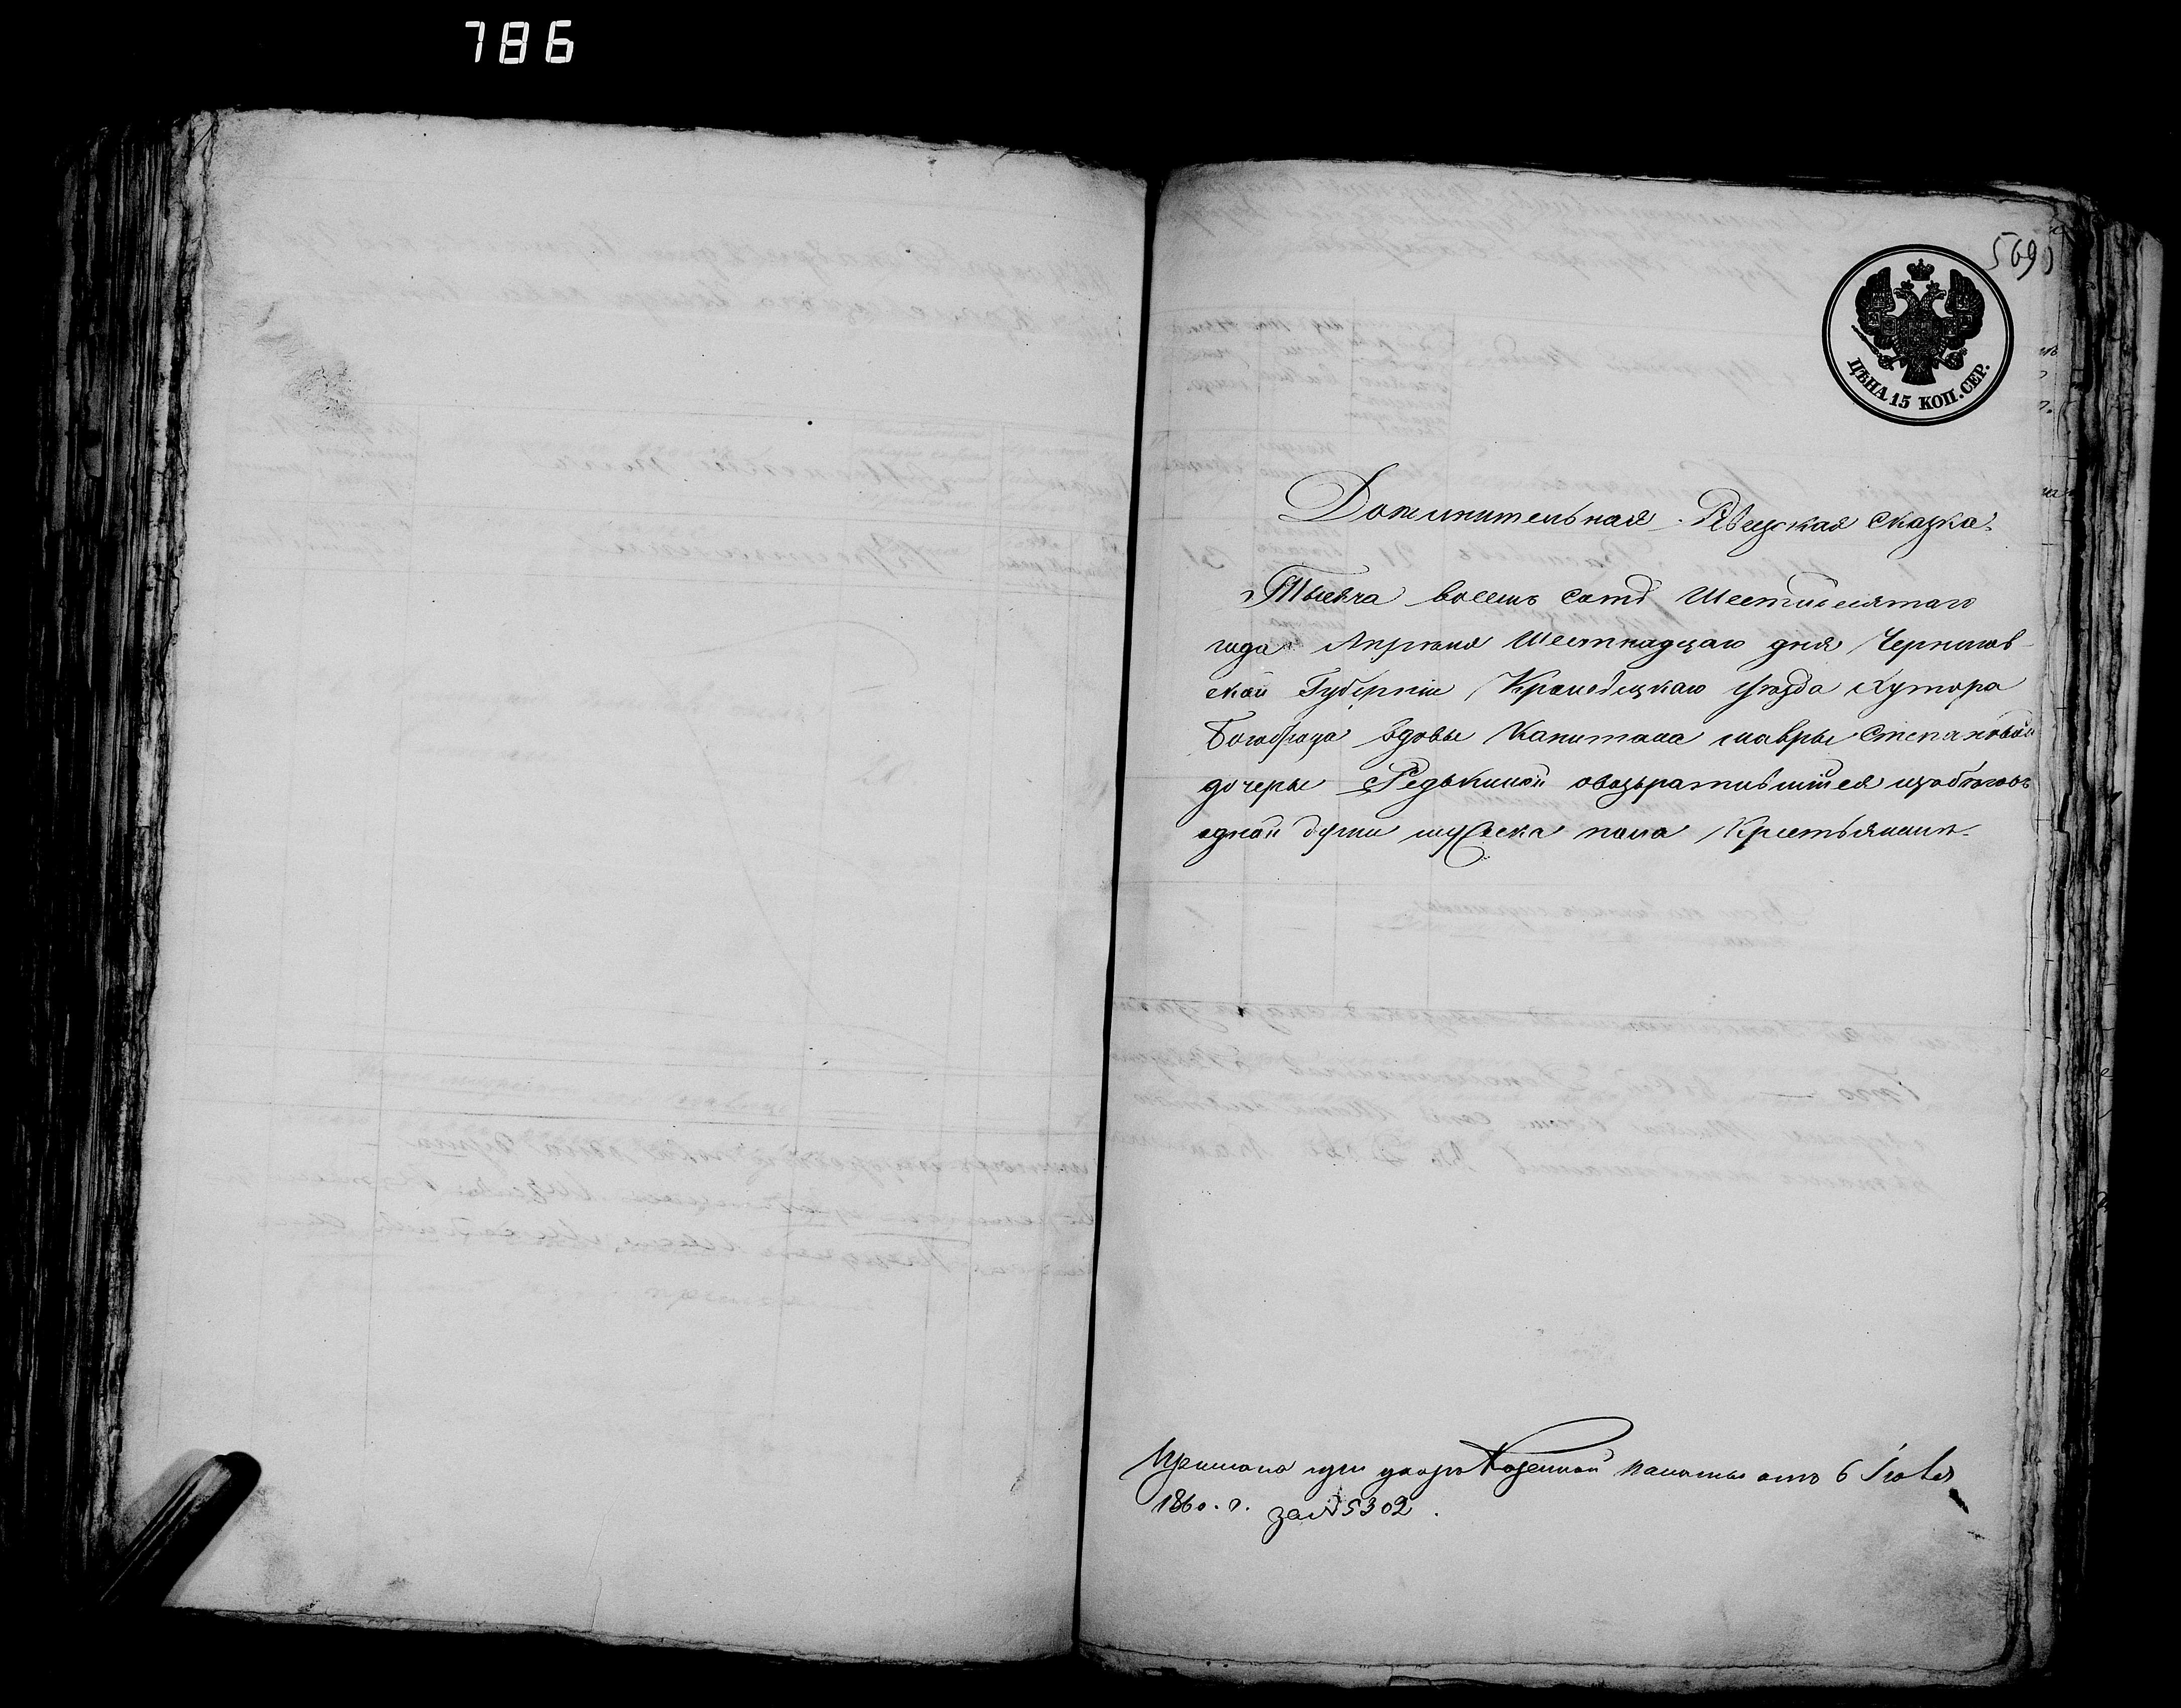 786
569
ЦѢНА 15 КОП. СЕР.
Дополнительная Ревизская сказка.
Тысяча восемь сотъ Шестидесятаго
года Апреля Шестнадцаго дня Чернигов
ской Губернии Кролевецкаго уезда Хутора
вдовы Капитана Мавры Степановой
дочеры Редькиной овозвратившейся изъ беговъ
одной души мужеска пола Крестьянина.
Принята при указе Казенной палаты отъ 6 Іюля
1860. г. за № 5302.